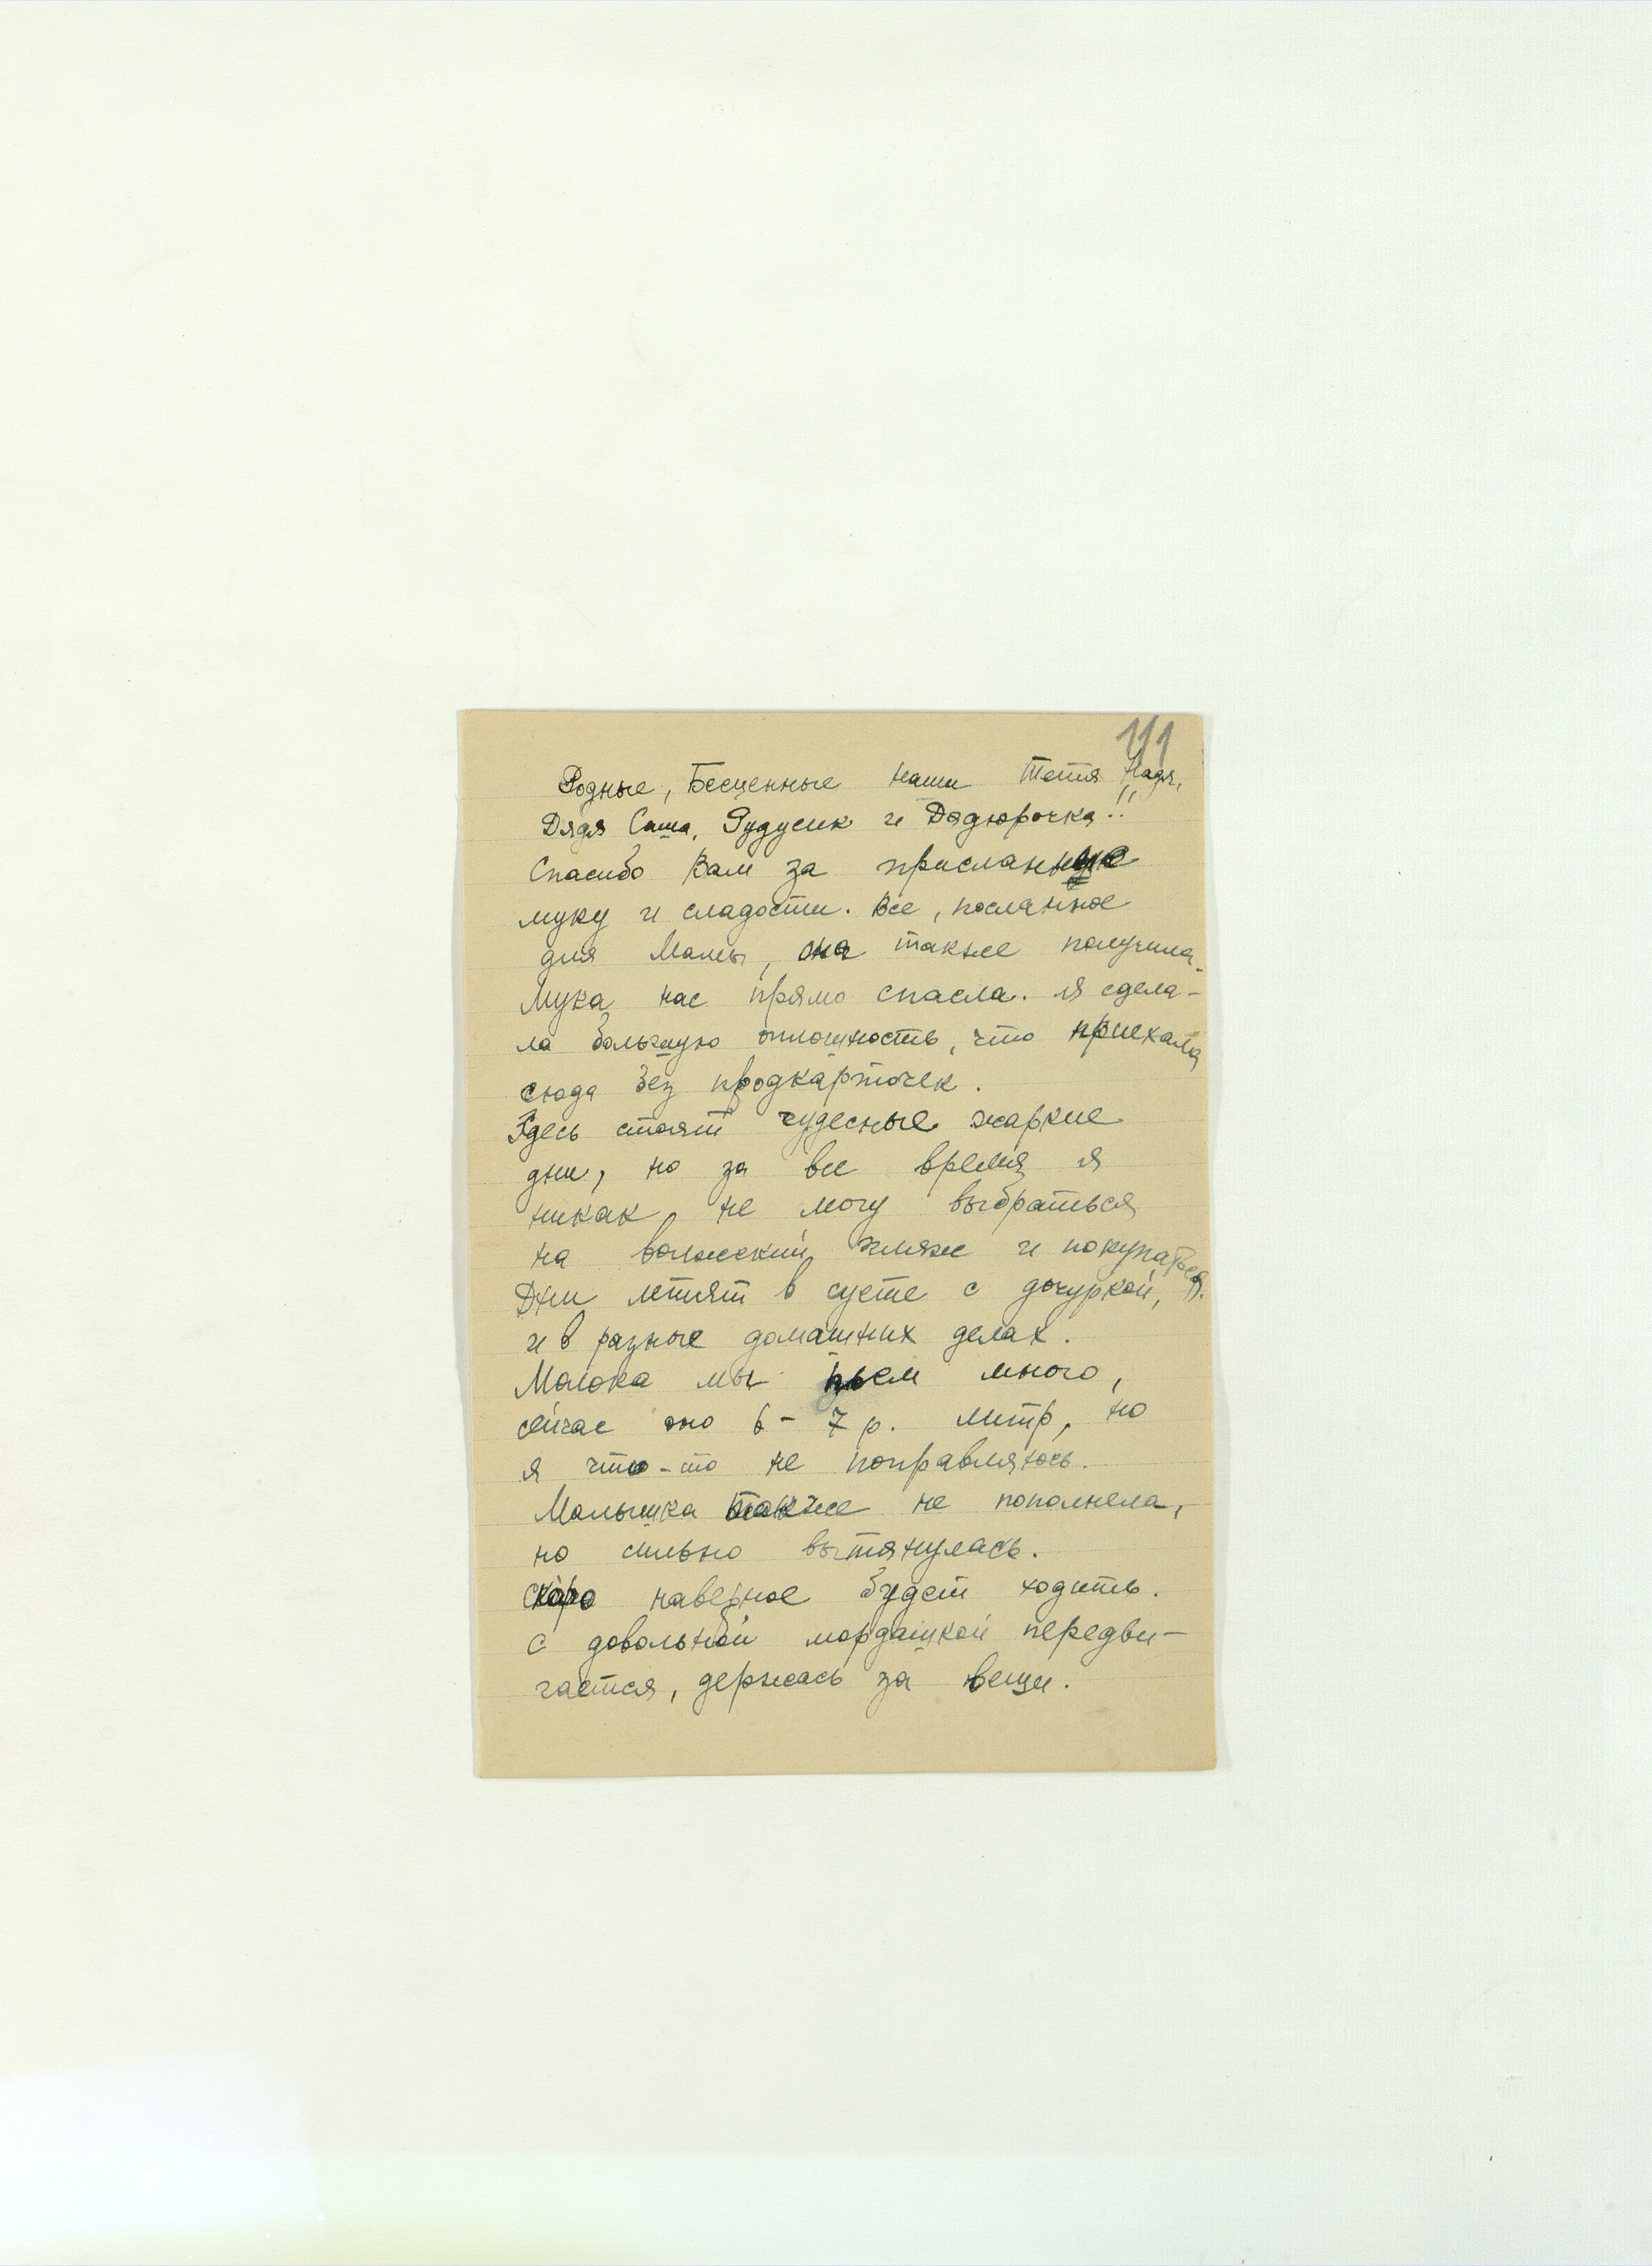 111
Родные, Бесценные наши Тетя Надя,
Дядя Саша, Дудусик и Дядюрочка!!
Спасибо Вам за присланную
муку и сладости. Все, посланное
для Мамы, она также получила.
Мука нас прямо спасла. Я сдела-
ла большую оплошность, что приехала
сюда без продкарточек.
Здесь стоят чудесные жаркие
дни, но за все время я
никак не могу выбраться
на волжский пляж и покупаться.
Дни летят в суете с дочуркой,
и в разные домашних делах.
Молока мы пьем много,
сейчас оно 6 - 7 р. литр, но
я что-то не поправляюсь.
Малышка также не пополнела,
но сильно вытянулась.
Скоро наверное будет ходить.
С довольной мордашкой передви-
гается, держась за вещи.